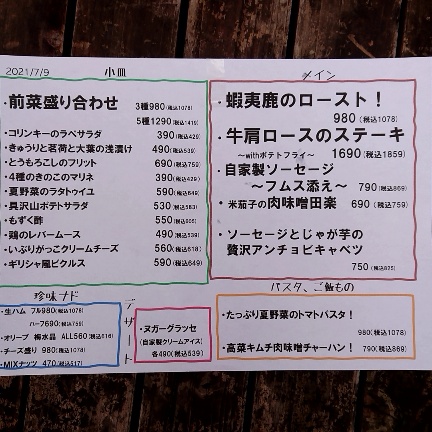 2021/7/9
小皿
・前菜盛り合わせ 3種980(税込1078)
5種1290(税込1419)
・コリンキーのラペサラダ 390(税込429)
・きゅうりと茗荷と大葉の浅漬け 490(税込539)
・とうもろこしのフリット 690(税込759)
・4種のきのこのマリネ 390(税込429)
・夏野菜のラタトゥイユ 590(税込649)
・具沢山ポテトサラダ 530(税込583)
・もずく酢 550(税込605)
・鶏のレバームース 490(税込539)
・いぶりがっこクリームチーズ 560(税込616)
・ギリシャ風ピクルス 590(税込649)
メイン
・蝦夷鹿のロースト!
980(税込1078)
・牛肩ロースのステーキ
~withポテトフライ~ 1690(税込1859)
・自家製ソーセージ
~フムス添え~ 790(税込869)
・米茄子の肉味噌田楽 690(税込759)
・ソーセージとじゃが芋の
贅沢アンチョビキャベツ
750(税込825)
珍味ナド
・生ハム フル980(税込1078)
ハーフ690(税込759)
・オリーブ 梅水晶 ALL560(税込616)
・チーズ盛り 980(税込1078)
・MIXナッツ 470(税込517)
デザート
・ヌガーグラッセ
(自家製クリームアイス)
各490(税込539)
パスタ、ご飯もの
・たっぷり夏野菜のトマトパスタ!
980(税込1078)
・高菜キムチ肉味噌チャーハン! 790(税込869)